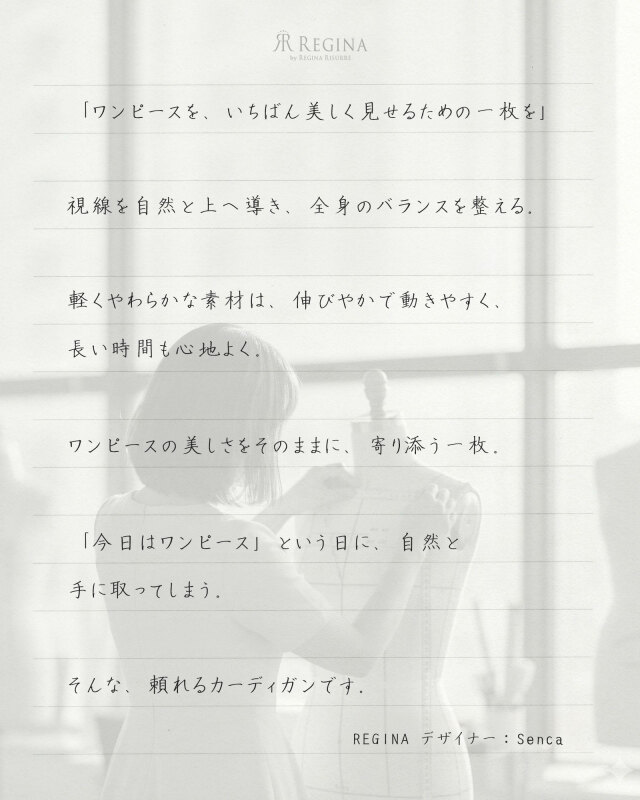 REGINA
by REGINA RISURRE
「ワンピースを、いちばん美しく見せるための一枚を」
視線を自然と上へ導き、全身のバランスを整える。
軽くやわらかな素材は、伸びやかで動きやすく、
長い時間も心地よく。
ワンピースの美しさをそのままに、寄り添う一枚。
「今日はワンピース」という日に、自然と
手に取ってしまう。
そんな、頼れるカーディガンです。
REGINA デザイナー：Senca